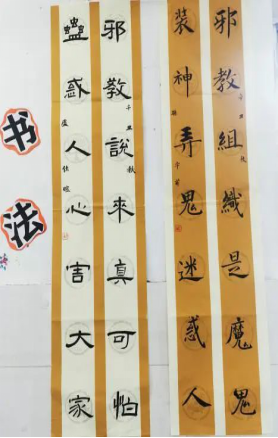 邪教組織是魔鬼
裝神弄鬼迷惑人
邪教說來真可怕
蠱惑人心害大家
书法